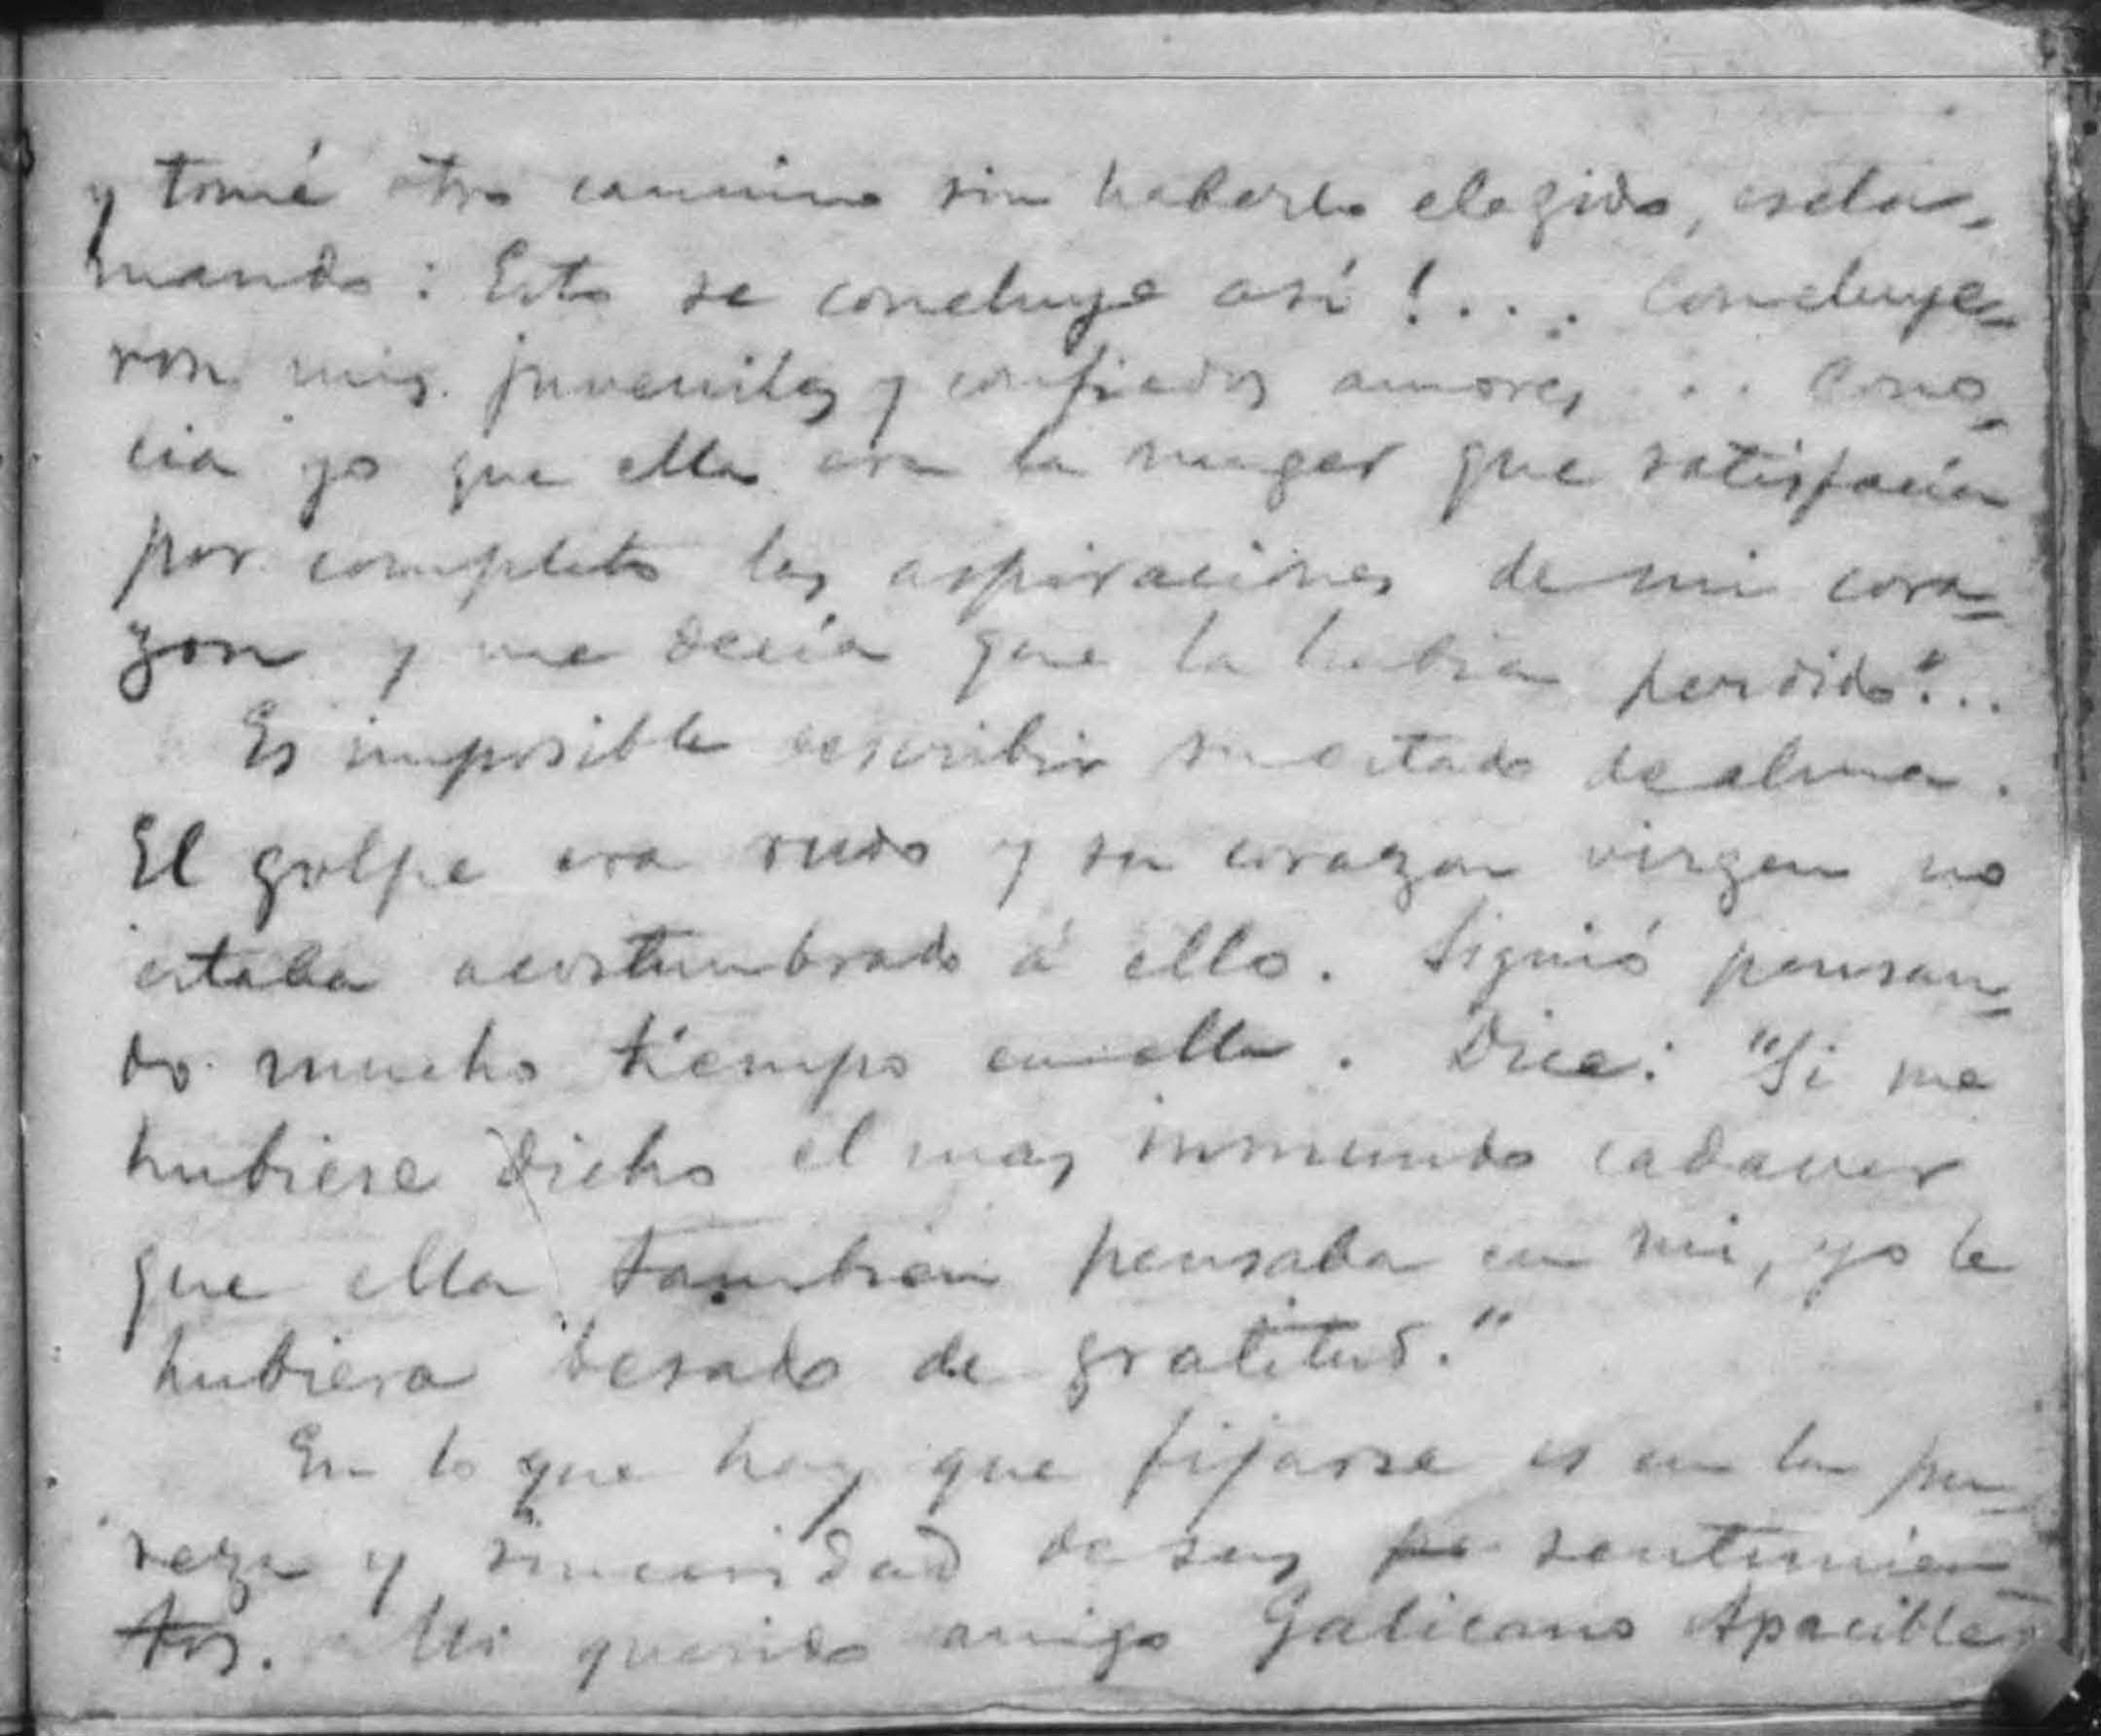 y tomé otro camino sin haberlo elegido, escla-
mando: Esto se concluye así!... Concluye-
ron mis juveniles y confiados amores ... Cono-
cia yo que ella era la muger que satisfacía
por completo las aspiraciones de mi cora-
zon y me decía que la habia perdido"...
Es imposible escribir su estado de alma.
El golpe era rudo y su corazon virgen no
estaba acostumbrado á ello. Siguió pensan-
do mucho tiempo en ella. Dice: "Si me
hubiese dicho el mas inmundo cadaver
que ella tambien pensaba en mi, yo le
hubiera besado de gratitud."
En lo que hay que fijarse es en la pu-
reza y sinceridad de sus pe sentimien-
tos. Mi querido amigo Galicano Apacible